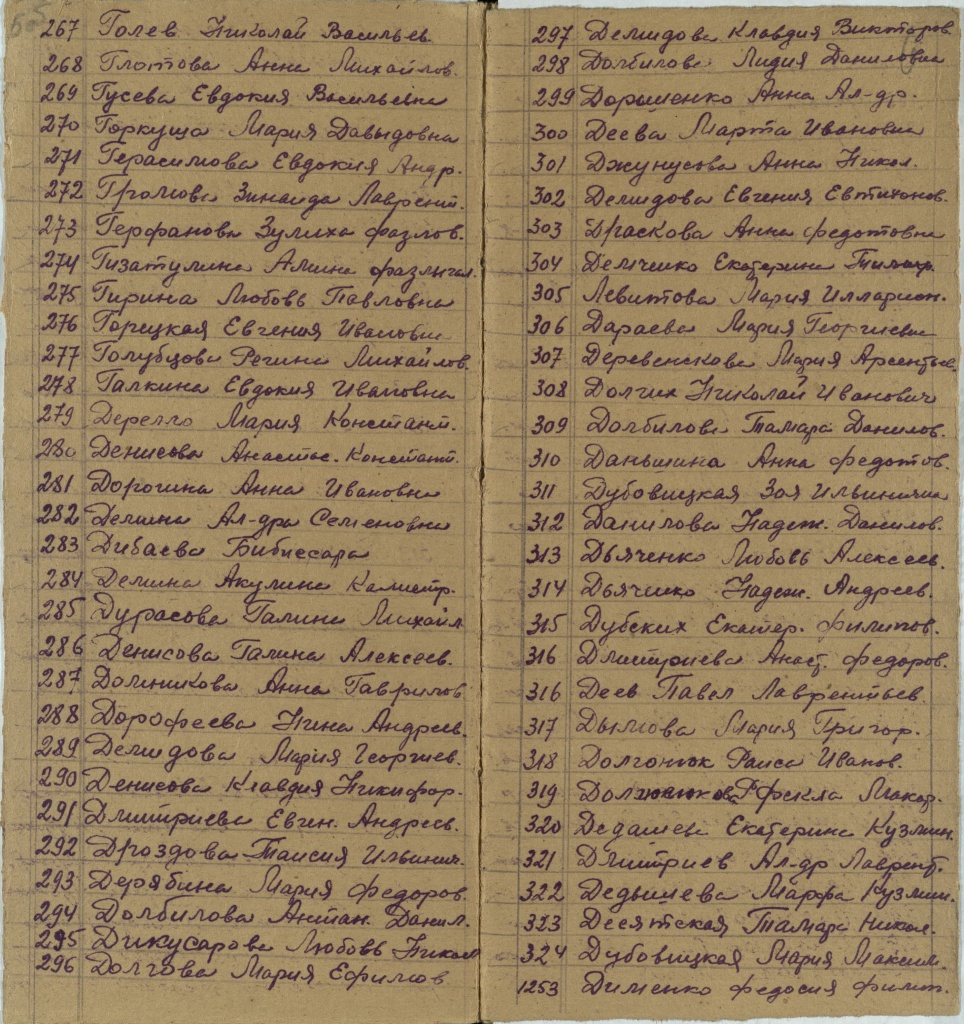 267 Голев Николай Васильев.
268 Глотова Анна Михайлов.
269 Гусева Евдокия Васильевна
270 Горкуша Мария Давыдовна
271 Герасимова Евдокия Андр.
272 Громова Зинаида Лаврент.
273 Герфанова Зулиха Фазлов.
274 Гизатулина Амина
275 Гирина Любовь Павловна
276 Горецкая Евгения Ивановна
277 Голубцова Регина Михайлов.
278 Галкина Евдокия Ивановна
279 Мария Констант.
280 Денисова Анастас. Констант.
281 Дорогина Анна Ивановна
282 Демина Ал-дра Семеновна
283 Дибаева Бибиссара
284 Демина Акулина Калистр.
285 Дурасова Галина Михайл
286 Денисова Галина Алексеев.
287 Должникова Анна Гаврилов
288 Дорофеева Нина Андреев.
289 Демидова Мария Георгиев.
290 Денисова Клавдия Никифор.
291 Дмитриева Евген. Андреев.
292 Дроздова Таисия Ильинич.
293 Дерябина Мария Федоров.
294 Долбилова Антан. Данил.
295 Дикусарова Любовь Никол
296 Долгова Мария Ефимов
297 Демидова Клавдия Викторов
298 Долбилова Лидия Даниловна
299 Дорошенко Анна Ал-др.
300 Деева Марта Ивановна
301 Джунусова Анна Никол.
302 Демидова Евгения Евтихонов.
303 Драскова Анна Федотовна
304 Демченко Екатерина
305 Левитова Мария Илларион.
306 Дараева Мария Георгиевна
307 Деревенскова Мария Арсентьев.
308 Долгих Николай Иванович
309 Долбилова Тамара Данилов.
310 Даньшина Анна Федотов.
311 Дубовицкая Зоя Ильинична
312 Данилова Надеж. Данилов.
313 Дьяченко Любовь Алексеев.
314 Дьяченко Надеж. Андреев.
315 Дубских Екатер. Филипов.
316 Дмитриева Анаст. Федоров.
316 Деев Павел Лаврентьев.
317 Дымова Мария Григор.
318 Долгонюк Раиса Иванов.
319 Макар.
320 Дедашева Екатерина Кузмин.
321 Дмитриев Ал-др Лаврент.
322 Дедышева Марфа Кузмин.
323 Десятская Тамара Никол.
324 Дубовицкая Мария Максим.
1253 Дименко Федосия Филип.